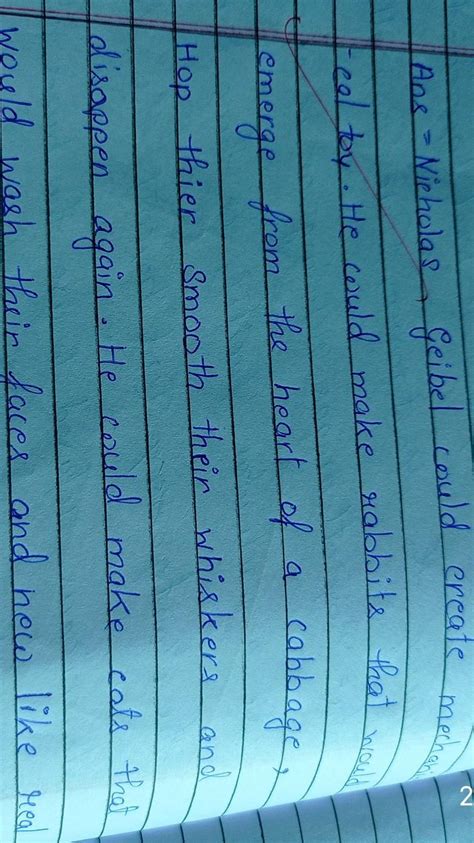 Ans = Nicholas, Geibel could create mechani
-cal toy. He could make rabbits that would
emerge from the heart of a cabbage,
Hop thier smooth their whiskers and
disappen again. He could make cats that
would wash their faces and new like real
2